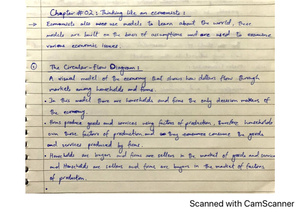 Chapter #02: Thinking like an economist:
→ Economists also use models to learn about the world, these
models are built on the basis of assumptions and are used to examine
various economic issues.
① The Circular-Flow Diagram:
A visual model of the economy that shows how dollars flow through
markets among households and firms.
• In this model there are households and firms the only decision makers of
the economy.
• Firms produce goods and services using factors of production, therefore households
own these factors of production and they consume the goods
and services produced by firms.
• Households are buyers and firms are sellers in the market of goods and services
and Households are sellers and firms are buyers in the market of factors
of production.
Scanned with CamScanner